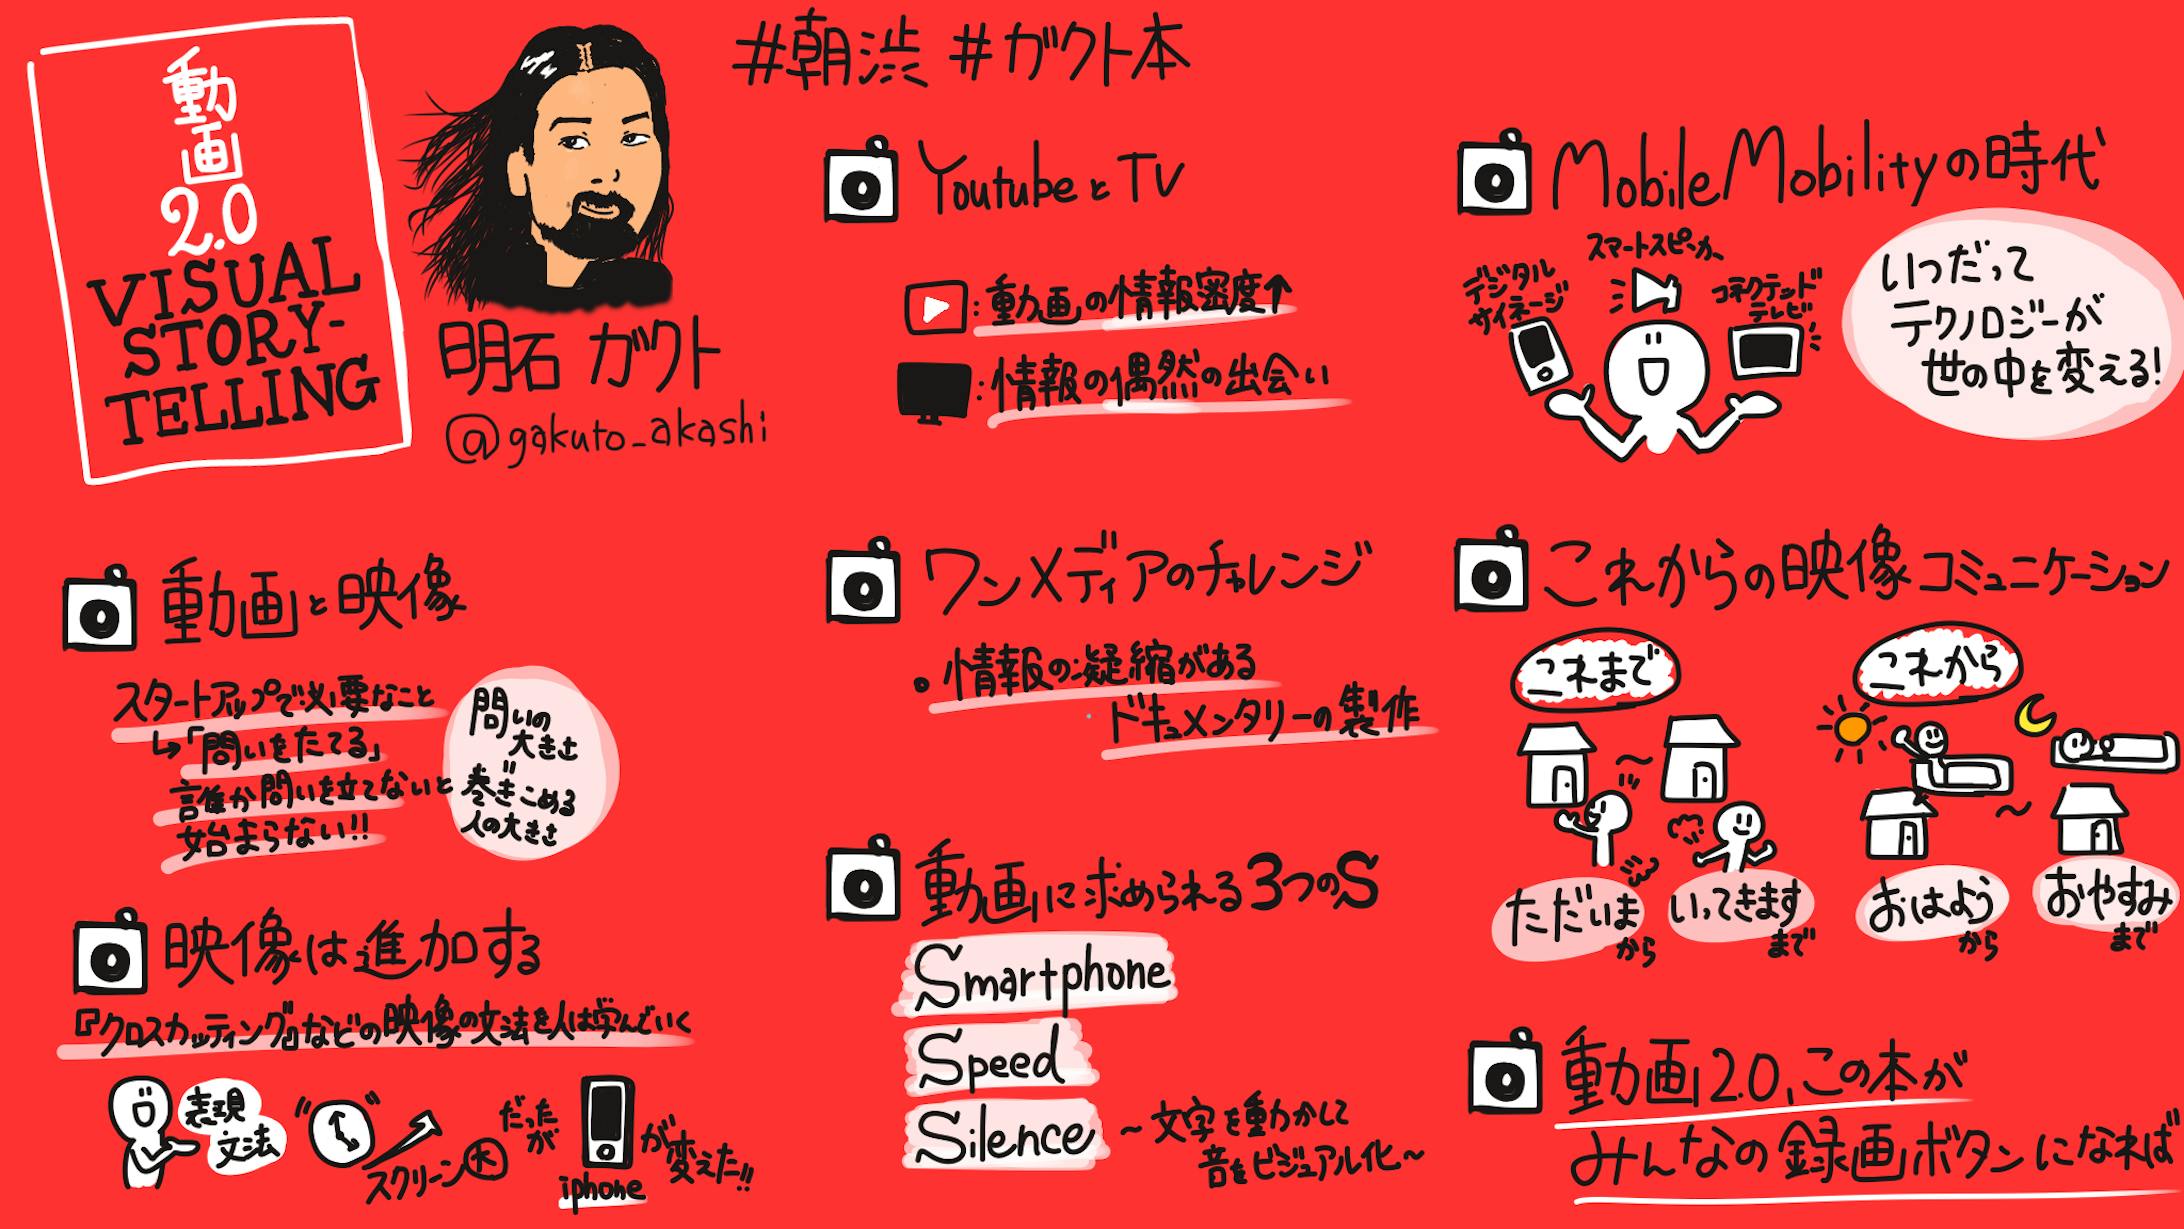 動画
2.0
VISUAL
STORY-
TELLING
明石 ガクト
@gakuto_akashi
#朝渋 #ガクト本
動画と映像
スタートアップで必要なこと
↳「問いをたてる」
誰か問いを立てないと
始まらない!!
問いの
大きさ
"
巻きこめる
人の大きさ
映像は進加する
『クロスカッティング』などの映像の文法を人は学んでいく
表現
文法
スクリーン大
だった
が
iphone
が
変えた!!
YoutubeとTV
:動画の情報密度↑
:情報の偶然の出会い
ワンメディアのチャレンジ
・情報の凝縮がある
ドキュメンタリーの製作
動画に求められる3つのS
Smartphone
Speed
Silence
~文字を動かして
音をビジュアル化~
Mobile Mobilityの時代
デジタル
サイネージ
スマートスピーカー
コネクテッド
テレビ
いつだって
テクノロジーが
世の中を変える!
これからの映像コミュニケーション
これまで
~
ただいま
から
いってきます
まで
これから
~
おはよう
から
おやすみ
まで
動画2.0,この本が
みんなの録画ボタンになれば